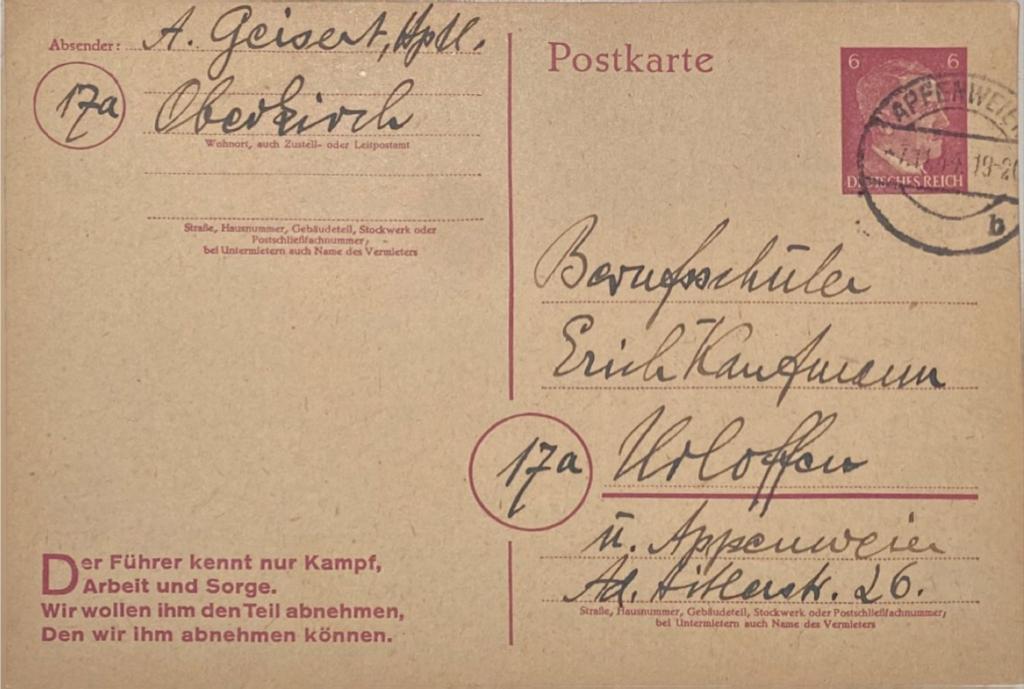 Absender: A. Geisert, Hptl.
17a
Oberkirch
Wohnort, auch Zustell- oder Leitpostamt
Straße, Hausnummer, Gebäudeteil, Stockwerk oder
Postschließfachnummer,
bei Untermietern auch Name des Vermieters
Der Führer kennt nur Kampf,
Arbeit und Sorge.
Wir wollen ihm den Teil abnehmen,
Den wir ihm abnehmen können.
Postkarte
6 6
DEUTSCHES REICH
APPENWEIER
19-20
b
Berufsschüler
Erich Kaufmann
17a Urloffen
ü. Appenweier
Ad. Hitlerstr. 26.
Straße, Hausnummer, Gebäudeteil, Stockwerk oder Postschließfachnummer,
bei Untermietern auch Name des Vermieters